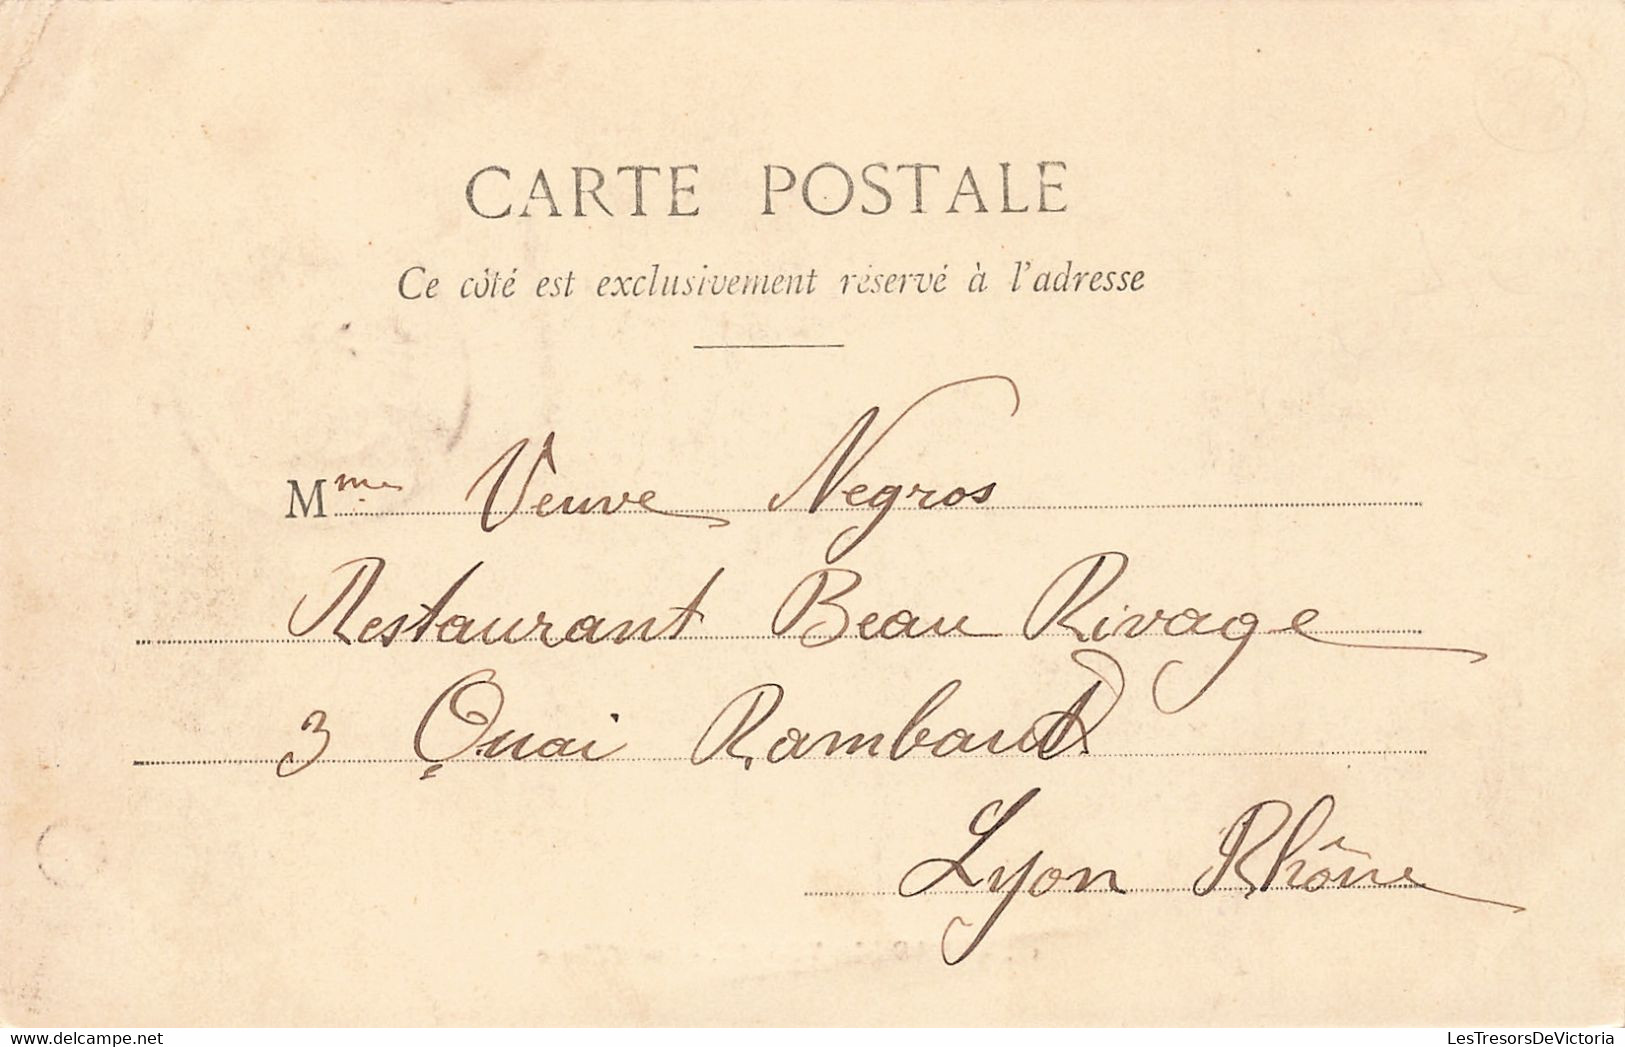 CARTE POSTALE
Ce côté est exclusivement réservé à l'adresse
Mme Veuve Negros
Restaurant Beau Rivage
3 Quai Rambaud
Lyon Rhône
LesTresorsDeVictoria